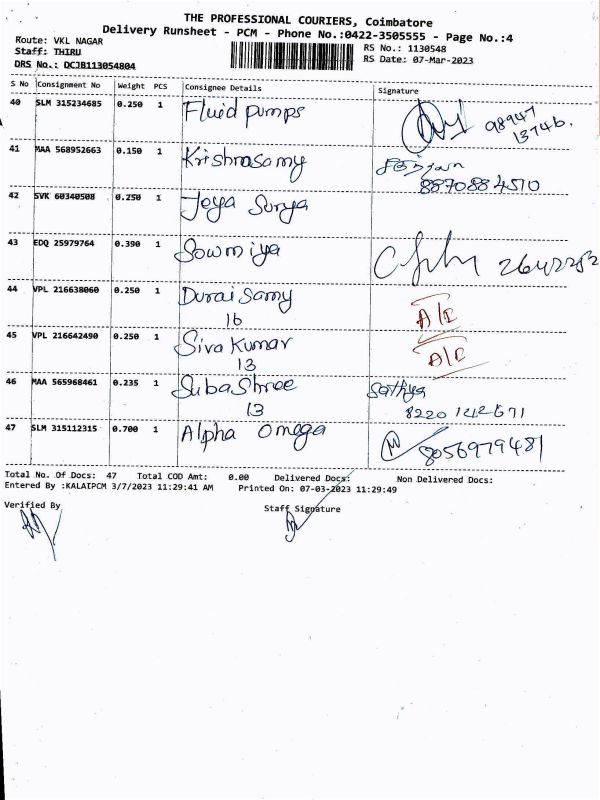 THE PROFESSIONAL COURIERS, Coimbatore
Delivery Runsheet - PCM - Phone No.:0422-3505555 - Page No.:4
Route: VKL NAGAR
Staff: THIRU
DRS No.: DCJB113054804
RS No.: 1130548
RS Date: 07-Mar-2023
S No Consignment No Weight PCS Consignee Details Signature
40 SLM 315234685 0.250 1 Fluid Pumps 98947
13746.
41 MAA 568952663 0.150 1 Krishnasamy
8870884570
42 SVK 60340508 0.250 1 Jeya Surya
43 EDQ 25979764 0.390 1 Sowmiya
44 VPL 216638060 0.250 1 Durai Samy
16
45 VPL 216642490 0.250 1 Siva Kumar
13
46 MAA 565968461 0.235 1 Suba Shree Sathya
13 8220 142671
47 SLM 315112315 0.700 1 Alpha Omega 8056979481
Total No. Of Docs: 47 Total COD Amt: 0.00 Delivered Docs: Non Delivered Docs:
Entered By :KALAIPCM 3/7/2023 11:29:41 AM Printed On: 07-03-2023 11:29:49
Verified By Staff Signature